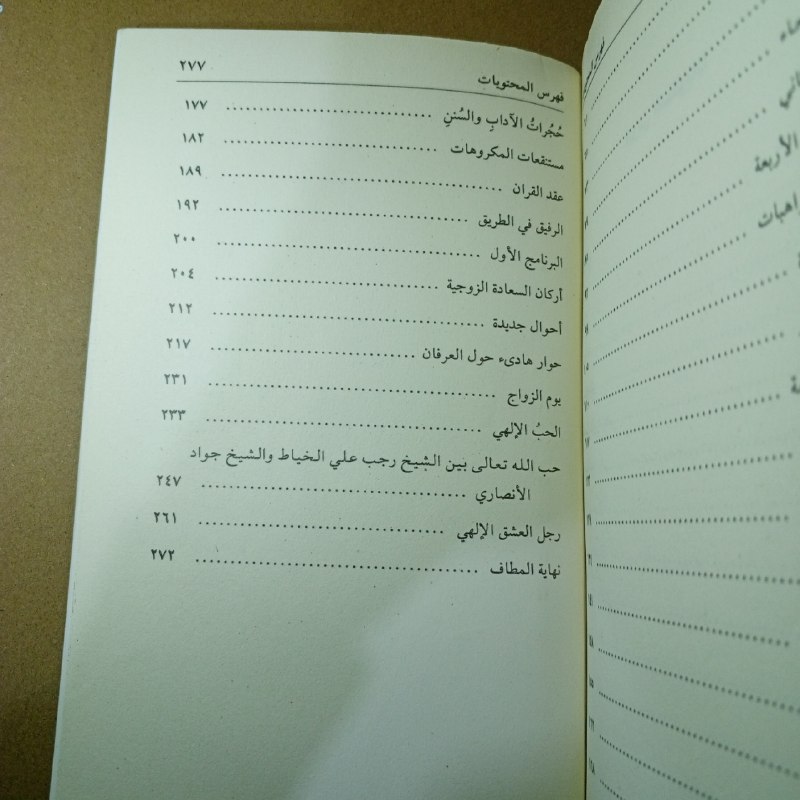 فهرس المحتويات ٢٧٧
حُجُراتُ الآدابِ والسُننِ ........ ١٧٧
مستنقعات المكروهات ........ ١٨٢
عقد القران ........ ١٨٩
الرفيق في الطريق ........ ١٩٢
البرنامج الأول ........ ٢٠٠
أركان السعادة الزوجية ........ ٢٠٤
أحوال جديدة ........ ٢١٢
حوار هادىء حول العرفان ........ ٢١٧
يوم الزواج ........ ٢٣١
الحبُ الإلهي ........ ٢٣٣
حب الله تعالى بين الشيخ رجب علي الخياط والشيخ جواد
الأنصاري ........ ٢٤٧
رجل العشق الإلهي ........ ٢٦١
نهاية المطاف ........ ٢٧٢
الأربعة